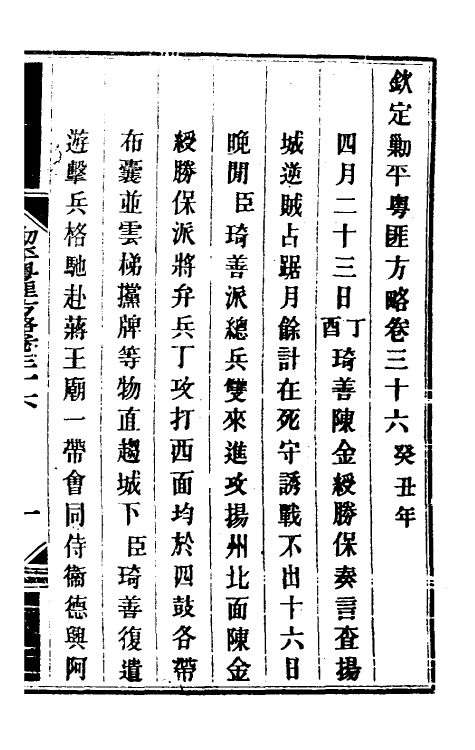 欽定勦平粵匪方略卷三十六 癸丑年
四月二十三日丁酉琦善陳金綬勝保奏言查揚
城逆賊占踞月餘計在死守誘戰不出十六日
晚間臣琦善派總兵雙來進攻揚州北面陳金
綬勝保派將弁兵丁攻打西面均於四鼓各帶
布囊並雲梯攩牌等物直趨城下臣琦善復遣
遊擊兵格馳赴蔣王廟一帶會同侍衞德興阿
卷三十六
一